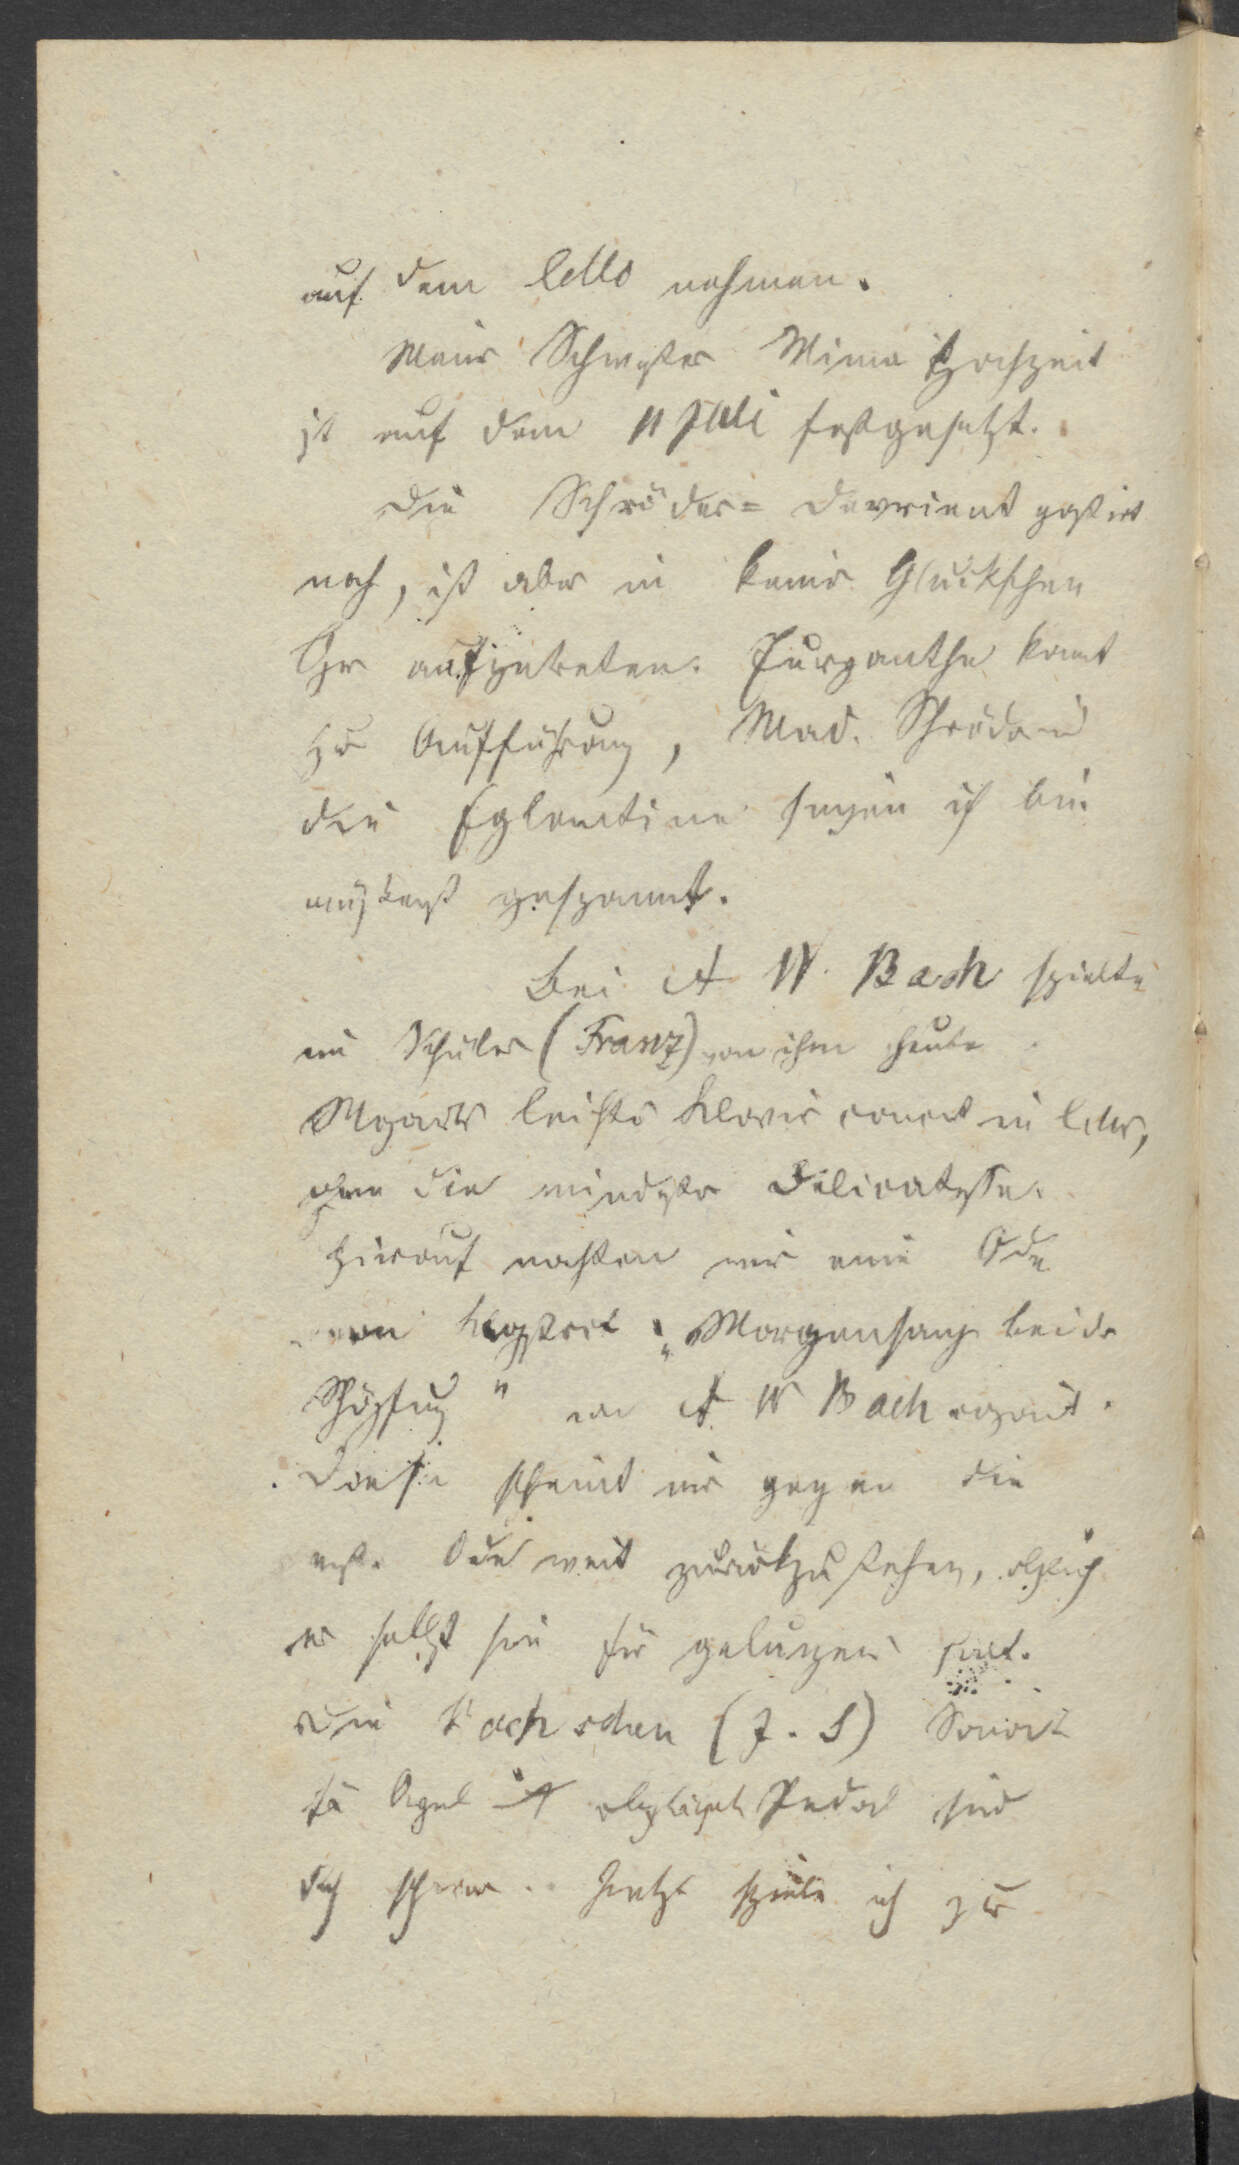 auf dem Cello nehmen.
Meine Schwester Mima Hochzeit
ist auf dem 11 Juli festgesetzt.
Die Schröder= Devrient gastirt
noch, ist aber in keine Gluckschen
Op aufzutreten. Euryanthe komt
zur Aufführung, Mad. Schröder wird
die Eglantine singen ich bin
gespannt.
Bei A W. Bach spielte
ein Schüler (Franz) von ihm heute
Mozarts leichtes Klavier concert in C dur,
ohne die mindeste Delicatesse.
Hierauf machten wir eine Ode
von Klopstock: „Morgensang bei der
Schöpfung" von A W Bach componirt.
Diese scheint mir gegen die
erste Ode weit zurückzustehen, obgleich
er selbst sie für gelungen hält.
Die Bachschen (J. S) Sonat
für Orgel obligat Pedal sind
doch schwer. Jetzt spiele ich zur